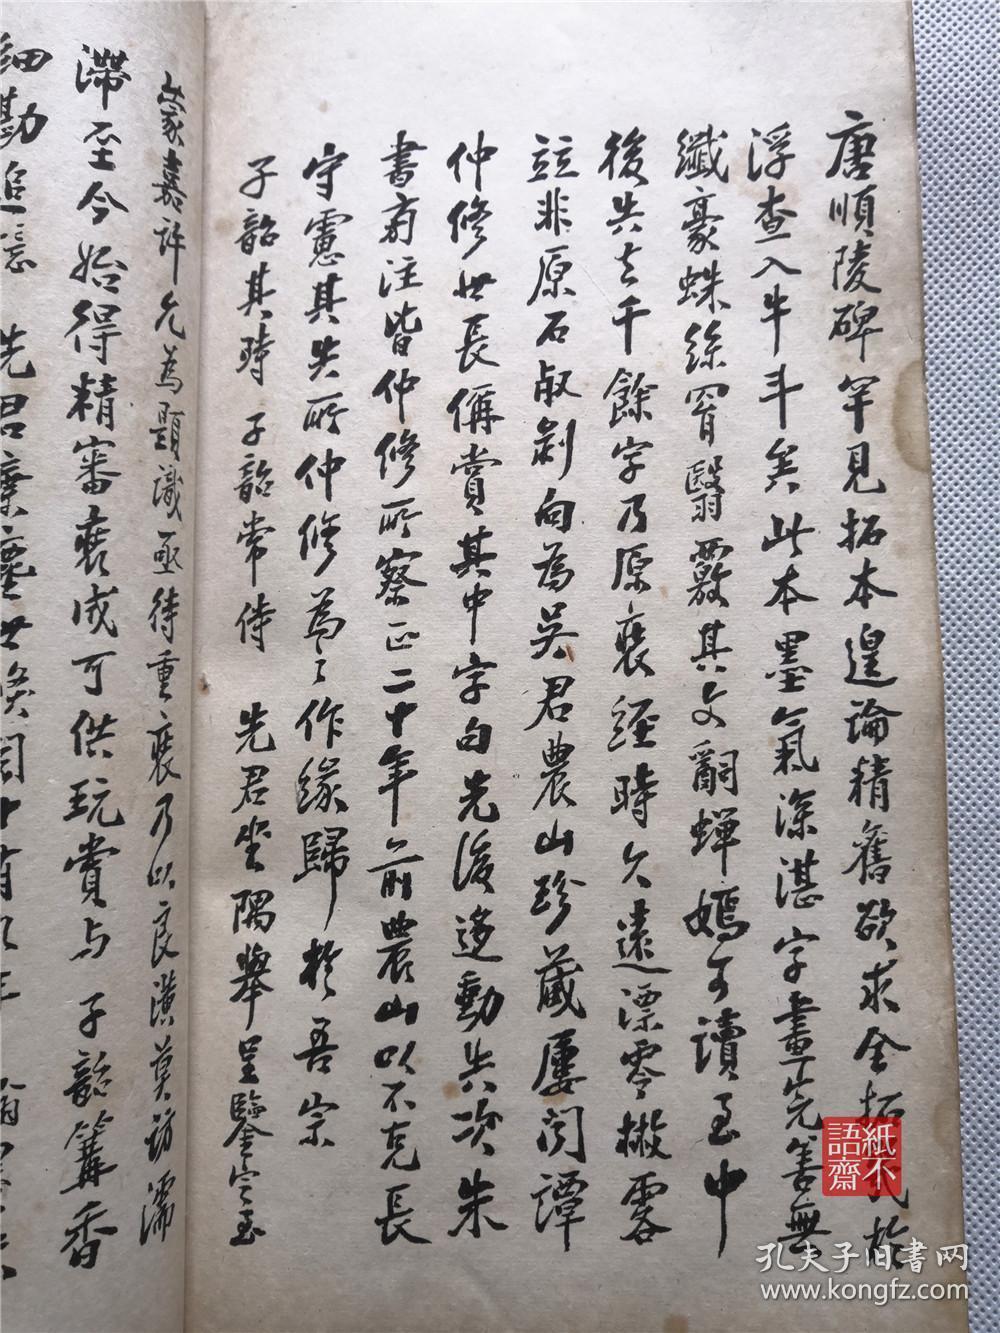 唐順陵碑罕見拓本遑論精舊欲求全拓於
浮查入牛斗矣此本墨氣深湛字畫完善無
纖豪蛛絲罥翳覈其文嗣蟬嫣可讀至中
後共去千餘字乃原裱經時久遠漂零撇畧
竝非原石敓剝向為吳君農山珍藏屢閱譚
仲修世長偁賞其中字句先後迻動共次朱
書旁注皆仲修所察正二十年前農山以不克長
守慮其失所仲修為之作緣歸於吾宗
子韶其時 子韶常侍 先君坐隅舉呈鑒定至
蒙嘉許允為題識亟待重裱乃以良潢莫訪濡
滯至今始得精審裱成可供玩賞与 子韶篝香
細勘追憶 先君棄塵世
紙不
語齋
孔夫子旧書网
www.kongfz.com